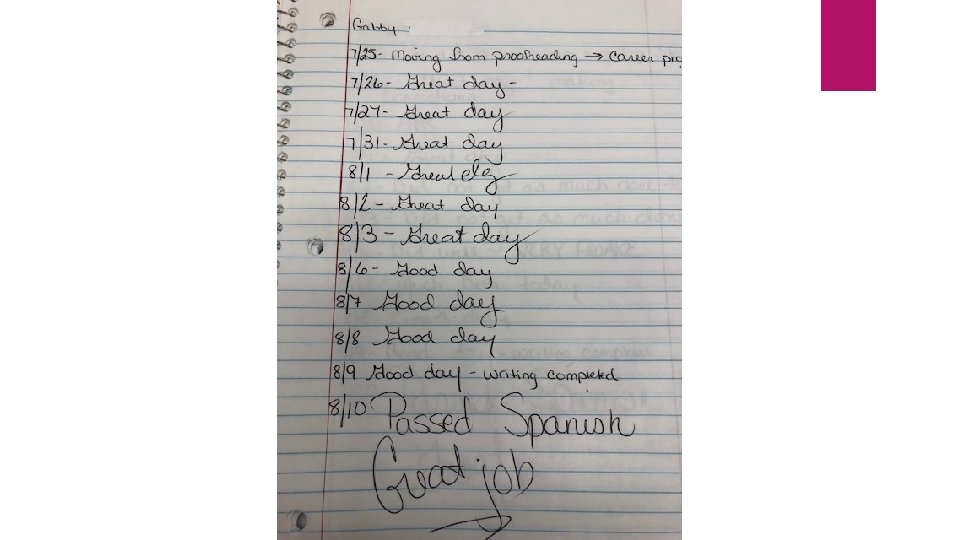 Gabby -
7/25- Moving from proofreading → career pre
7/26- Great day -
7/27- Great day
7/31- Great day
8/1 - Great day
8/2 - Great day
8/3 - Great day
8/6- Good day
8/7 Good day
8/8 Good day
8/9 Good day - writing completed
8/10 Passed Spanish
Great job